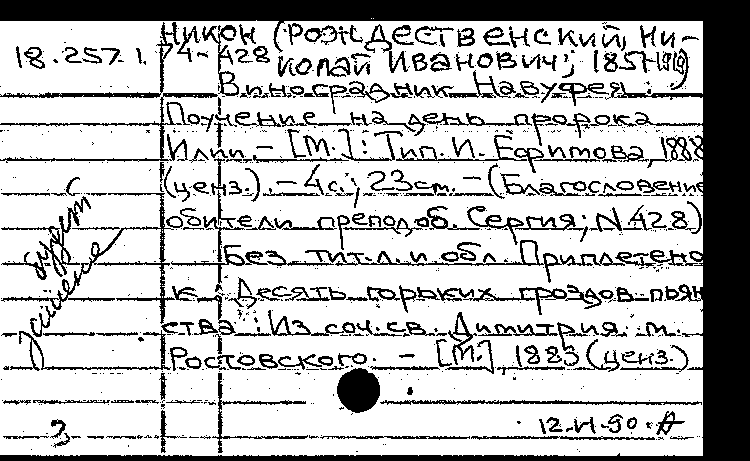 Никон (Рождественский, Ни-
18.257.1. 74-428 колай Иванович; 1851-1919)
Виноградник Навуфея :
Поучение на день пророка
Илии. - [М.] : Тип. И. Ефимова, 1888
(ценз.). - 4с.; 23см. - (Благословение
обители преподоб. Сергия; N 428)
Без тит.л. и обл. Приплетено
к : Десять горьких гроздов пьян
ства : Из соч. св. Димитрия м.
Ростовского. - [М.], 1883 (ценз.)
будет
3
12.VI.90.